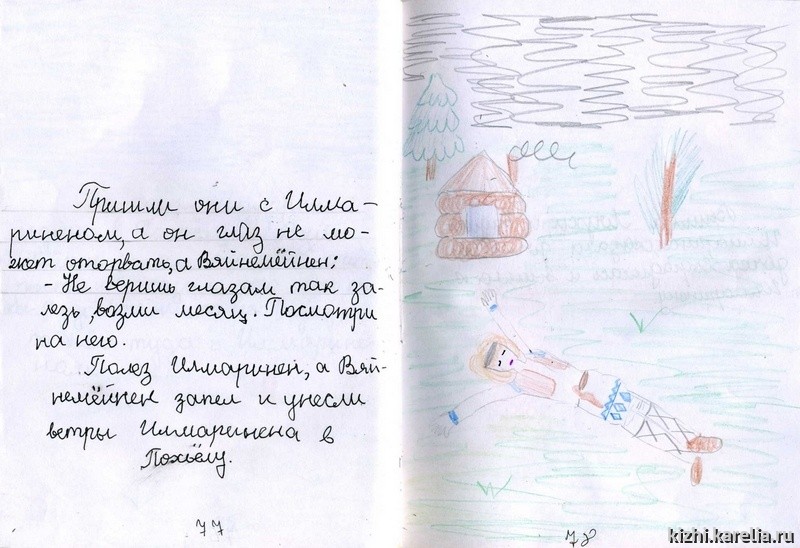 Пришли они с Илма-
риненом, а он глаз не мо-
жет оторвать, а Вяйнемёйнен:
- Не веришь глазам так за-
лезь, возми месяц. Посмотри
на него.
Полез Илмаринен, а Вяй-
немёйнен запел и унесли
ветры Илмаринена в
Похьёлу.
77
78
kizhi.karelia.ru